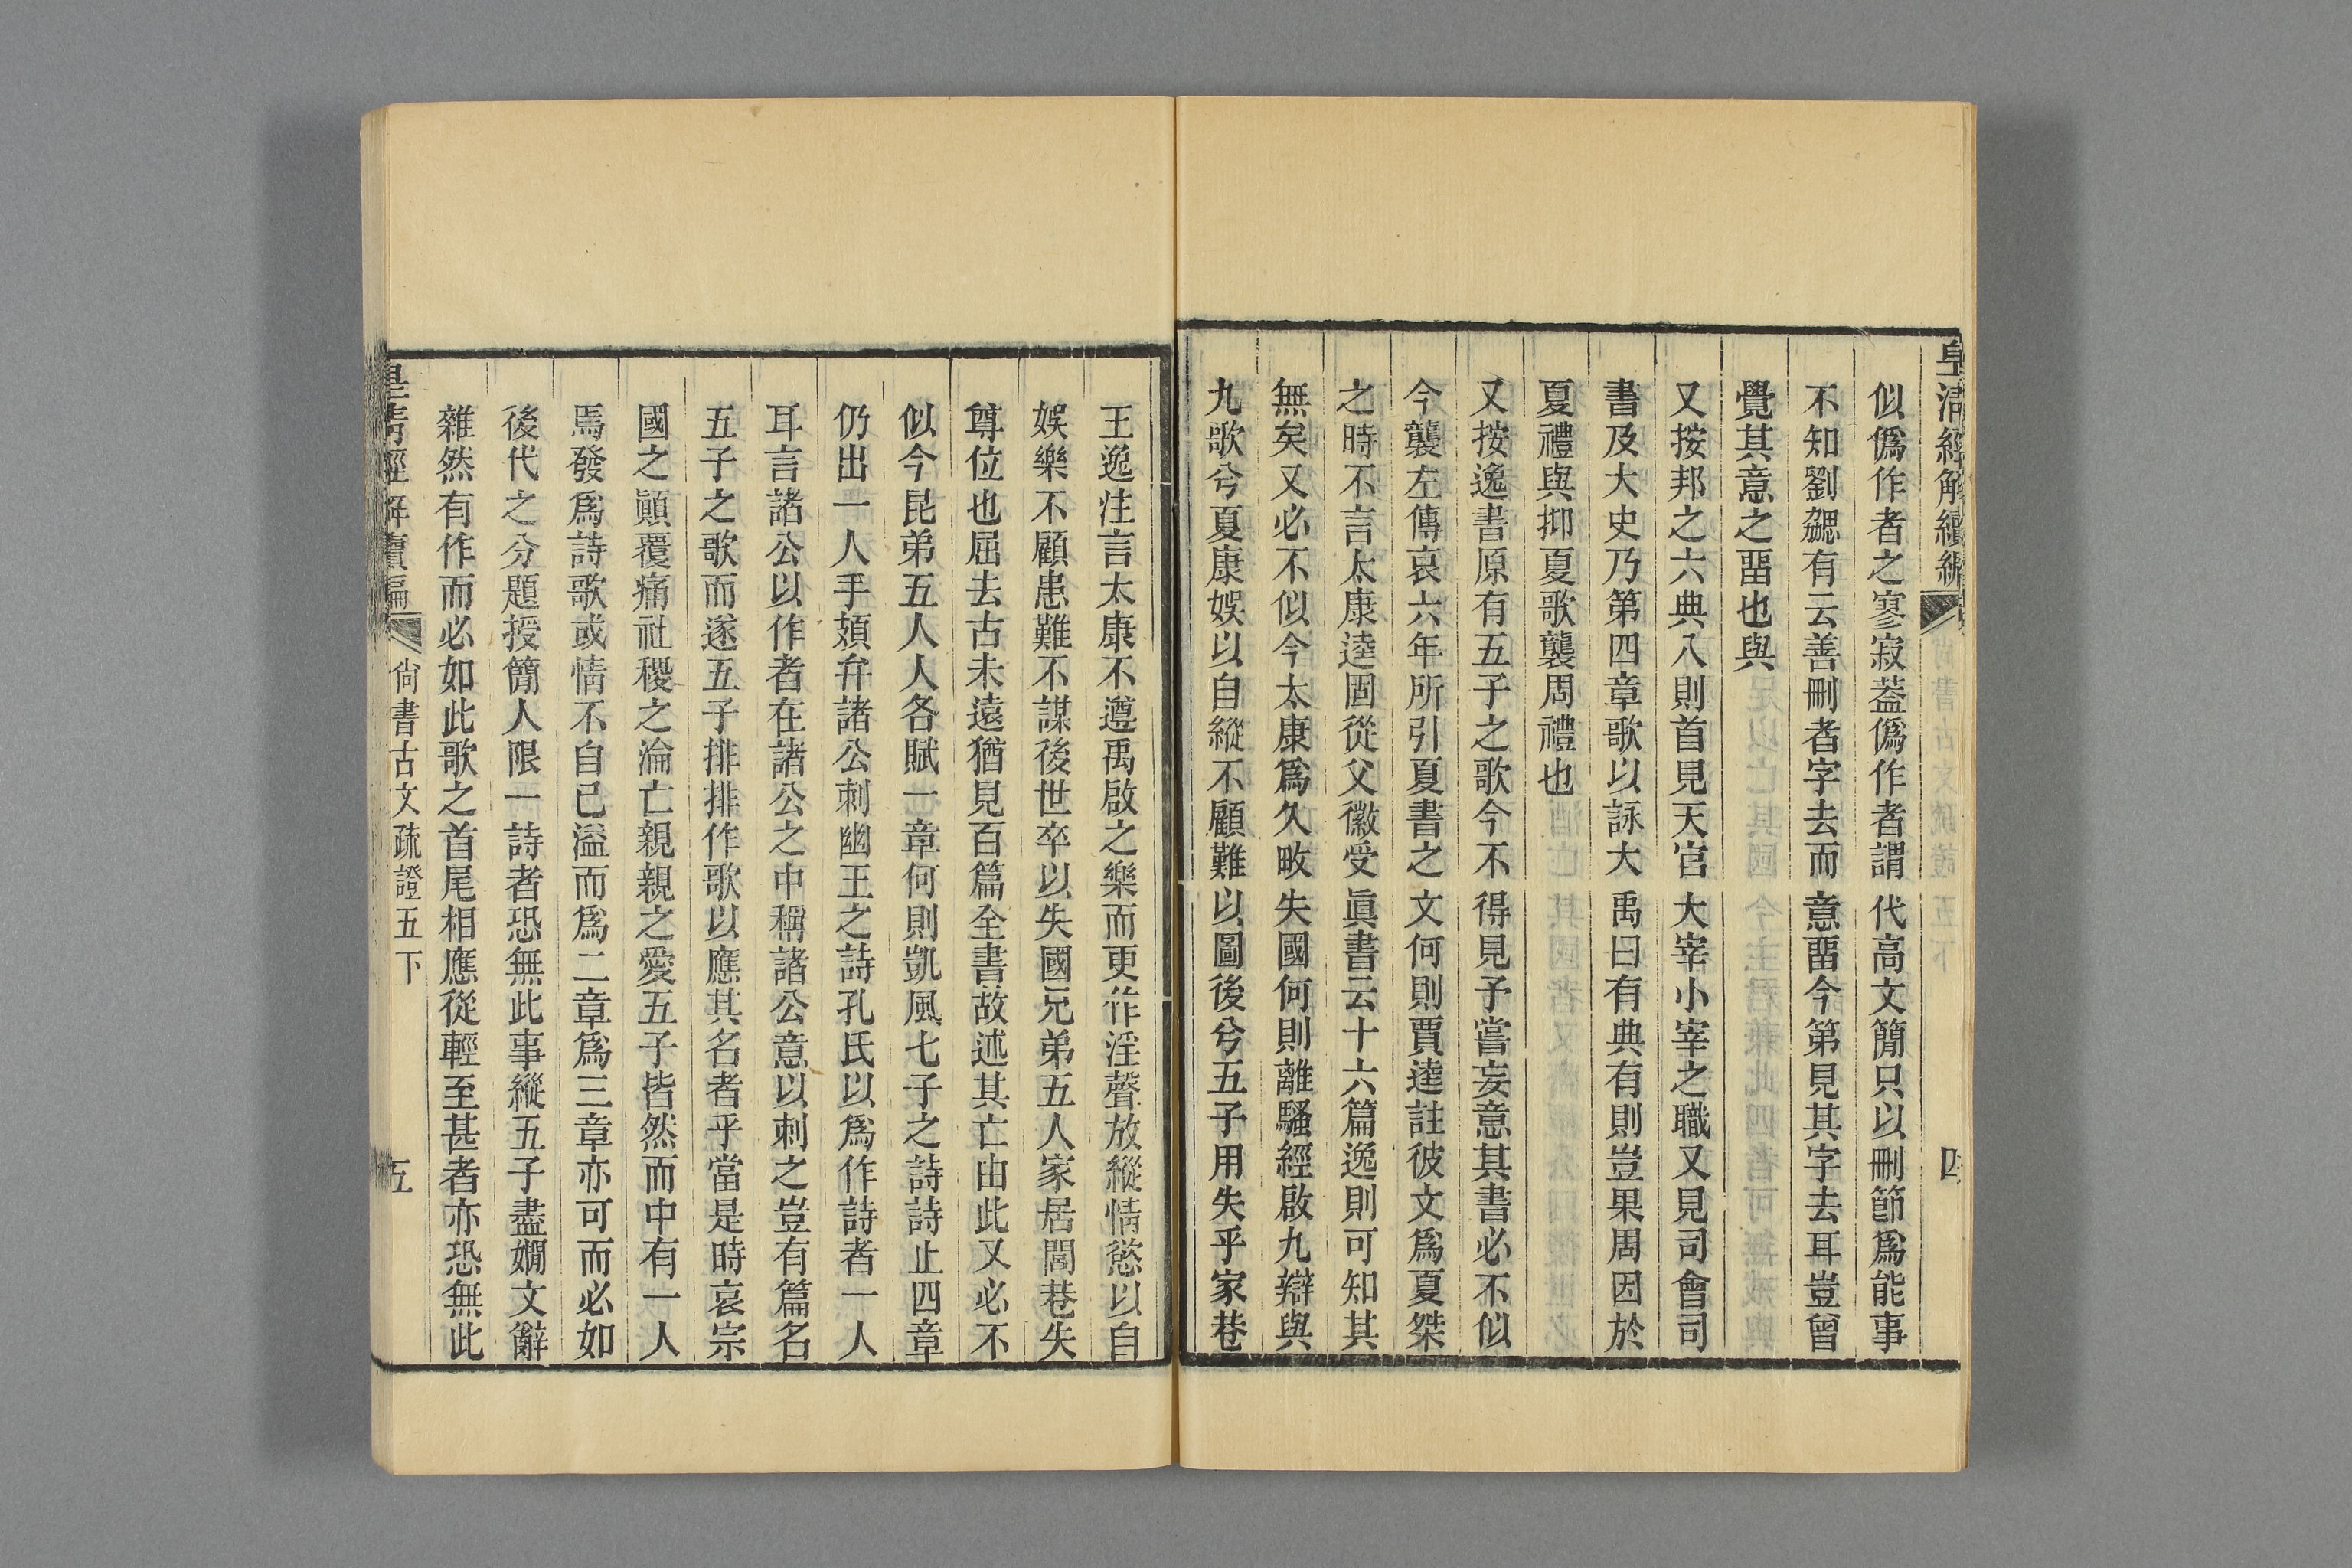 皇清經解續編
四
似僞作者之寥寂葢僞作者謂代高文簡只以刪節爲能事
不知劉勰有云善刪者字去而意畱今第見其字去耳豈曾
覺其意之畱也與
又按邦之六典八則首見天官大宰小宰之職又見司會司
書及大史乃第四章歌以詠大禹曰有典有則豈果周因於
夏禮與抑夏歌襲周禮也
又按逸書原有五子之歌今不得見予嘗妄意其書必不似
今襲左傳哀六年所引夏書之文何則賈逵註彼文爲夏桀
之時不言太康逵固從父徽受眞書云十六篇逸則可知其
無矣又必不似今太康爲久畋失國何則離騷經啟九辯與
九歌兮夏康娛以自縱不顧難以圖後兮五子用失乎家巷
王逸注言太康不遵禹啟之樂而更作淫聲放縱情慾以自
娛樂不顧患難不謀後世卒以失國兄弟五人家居閭巷失
尊位也屈去古未遠猶見百篇全書故述其亡由此又必不
似今昆弟五人人各賦一章何則凱風七子之詩詩止四章
仍出一人手頍弁諸公刺幽王之詩孔氏以爲作詩者一人
耳言諸公以作者在諸公之中稱諸公意以刺之豈有篇名
五子之歌而遂五子排排作歌以應其名者乎當是時哀宗
國之顚覆痛社稷之淪亡親親之愛五子皆然而中有一人
焉發爲詩歌或情不自已溢而爲二章爲三章亦可而必如
後代之分題授簡人限一詩者恐無此事縱五子盡嫺文辭
雜然有作而必如此歌之首尾相應從輕至甚者亦恐無此
皇清經解續編
尚書古文疏證五下
五